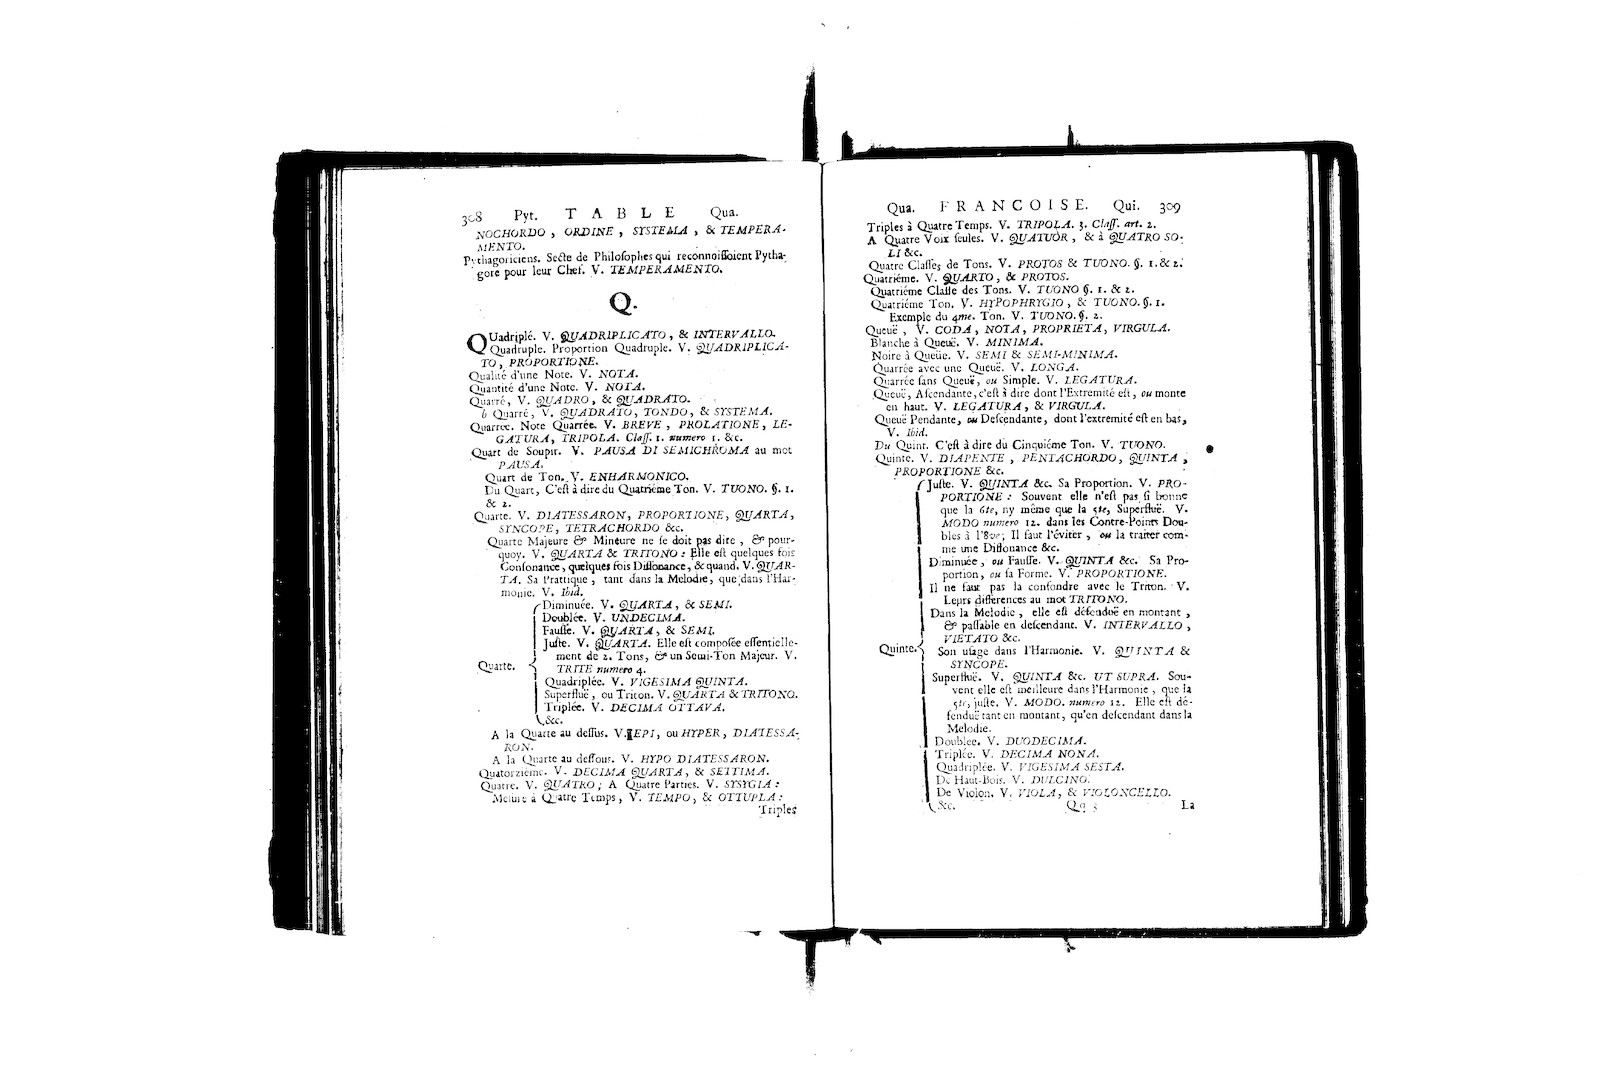 308 Pyt. TABLE Qua.
NOCHORDO, ORDINE, SYSTEMA, & TEMPERA-
MENTO.
Pythagoriciens. Secte de Philosophes qui reconnoissoient Pytha-
gore pour leur Chef. V. TEMPERAMENTO.
Q.
QUadriplé. V. QUADRIPLICATO, & INTERVALLO.
Quadruple. Proportion Quadruple. V. QUADRIPLICA-
TO, PROPORTIONE.
Qualité d'une Note. V. NOTA.
Quantité d'une Note. V. NOTA.
Quarré, V. QUADRO, & QUADRATO.
b Quarré, V. QUADRATO, TONDO, & SYSTEMA.
Quarrée. Note Quarrée. V. BREVE, PROLATIONE, LE-
GATURA, TRIPOLA. Claſſ. 1. numero 1. &c.
Quart de Soupir. V. PAUSA DI SEMICHROMA au mot
PAUSA.
Quart de Ton. V. ENHARMONICO.
Du Quart, C'eſt à dire du Quatriéme Ton. V. TUONO. §. 1.
& 2.
Quarte. V. DIATESSARON, PROPORTIONE, QUARTA,
SYNCOPE, TETRACHORDO &c.
Quarte Majeure & Mineure ne ſe doit pas dire, & pour-
quoy. V. QUARTA & TRITONO: Elle eſt quelques fois
Conſonance, quelques fois Diſſonance, & quand. V. QUAR-
TA. Sa Prattique, tant dans la Melodie, que dans l'Har-
monie. V. Ibid.
Diminuée. V. QUARTA, & SEMI.
Doublée. V. UNDECIMA.
Fauſſe. V. QUARTA, & SEMI.
Juſte. V. QUARTA. Elle eſt compoſée eſſentielle-
ment de 2. Tons, & un Semi-Ton Majeur. V.
Quarte. TRITE numero 4.
Quadriplée. V. VIGESIMA QUINTA.
Superfluë, ou Triton. V. QUARTA & TRITONO.
Triplée. V. DECIMA OTTAVA.
&c.
A la Quarte au deſſus. V. EPI, ou HYPER, DIATESSA-
RON.
A la Quarte au deſſous. V. HYPO DIATESSARON.
Quatorziéme. V. DECIMA QUARTA, & SETTIMA.
Quatre. V. QUATRO; A Quatre Parties. V. SYSYGIA:
Meſure à Quatre Temps, V. TEMPO, & OTTUPLA:
Triples
Qua. FRANCOISE. Qui. 309
Triples à Quatre Temps. V. TRIPOLA. 3. Claſſ. art. 2.
A Quatre Voix ſeules. V. QUATUOR, & à QUATRO SO-
LI &c.
Quatre Claſſes de Tons. V. PROTOS & TUONO. §. 1. & 2.
Quatriéme. V. QUARTO, & PROTOS.
Quatriéme Claſſe des Tons. V. TUONO §. 1. & 2.
Quatriéme Ton. V. HYPOPHRYGIO, & TUONO. §. 1.
Exemple du 4me. Ton. V. TUONO. §. 2.
Queuë, V. CODA, NOTA, PROPRIETA, VIRGULA.
Blanche à Queuë. V. MINIMA.
Noire à Queüe. V. SEMI & SEMI-MINIMA.
Quarrée avec une Queuë. V. LONGA.
Quarrée ſans Queuë, ou Simple. V. LEGATURA.
Queuë, Aſcendante, c'eſt à dire dont l'Extremité eſt, ou monte
en haut. V. LEGATURA, & VIRGULA.
Queuë Pendante, ou Deſcendante, dont l'extremité eſt en bas,
V. Ibid.
Du Quint. C'eſt à dire du Cinquiéme Ton. V. TUONO.
Quinte. V. DIAPENTE, PENTACHORDO, QUINTA,
PROPORTIONE &c.
Juſte. V. QUINTA &c. Sa Proportion. V. PRO-
PORTIONE: Souvent elle n'eſt pas ſi bonne
que la 6te, ny même que la 5te, Superfluë. V.
MODO numero 12. dans les Contre-Points Dou-
bles à l'8ve; Il faut l'éviter, ou la traiter com-
me une Diſſonance &c.
Diminuée, ou Fauſſe. V. QUINTA &c. Sa Pro-
portion, ou ſa Forme. V. PROPORTIONE.
Il ne faut pas la confondre avec le Triton. V.
Leurs differences au mot TRITONO.
Dans la Melodie, elle eſt défenduë en montant,
& paſſable en deſcendant. V. INTERVALLO,
VIETATO &c.
Quinte. Son uſage dans l'Harmonie. V. QUINTA &
SYNCOPE.
Superfluë. V. QUINTA &c. UT SUPRA. Sou-
vent elle eſt meilleure dans l'Harmonie, que la
5te, juſte. V. MODO. numero 12. Elle eſt dé-
fenduë tant en montant, qu'en deſcendant dans la
Melodie.
Doublée. V. DUODECIMA.
Triplée. V. DECIMA NONA.
Quadriplée. V. VIGESIMA SESTA.
De Haut-Bois. V. DULCINO.
De Violon. V. VIOLA, & VIOLONCELLO.
&c. Qq 3 La